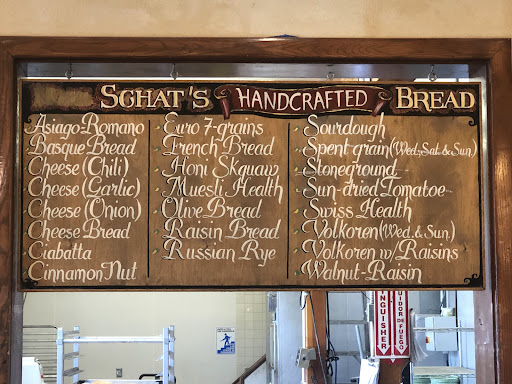 SCHAT'S HANDCRAFTED BREAD
Asiago-Romano
Basque Bread
Cheese (Chili)
Cheese (Garlic)
Cheese (Onion)
Cheese Bread
Ciabatta
Cinnamon Nut
Euro 7-grains
French Bread
Honi Skquaw
Muesli Health
Olive Bread
Raisin Bread
Russian Rye
Sourdough
Spent grain (Wed, Sat & Sun)
Stoneground
Sun-dried Tomatoe
Swiss Health
Volkoren (Wed & Sun)
Volkoren w/Raisins
Walnut-Raisin
INGUISHER
UIDOR DE FUEGO